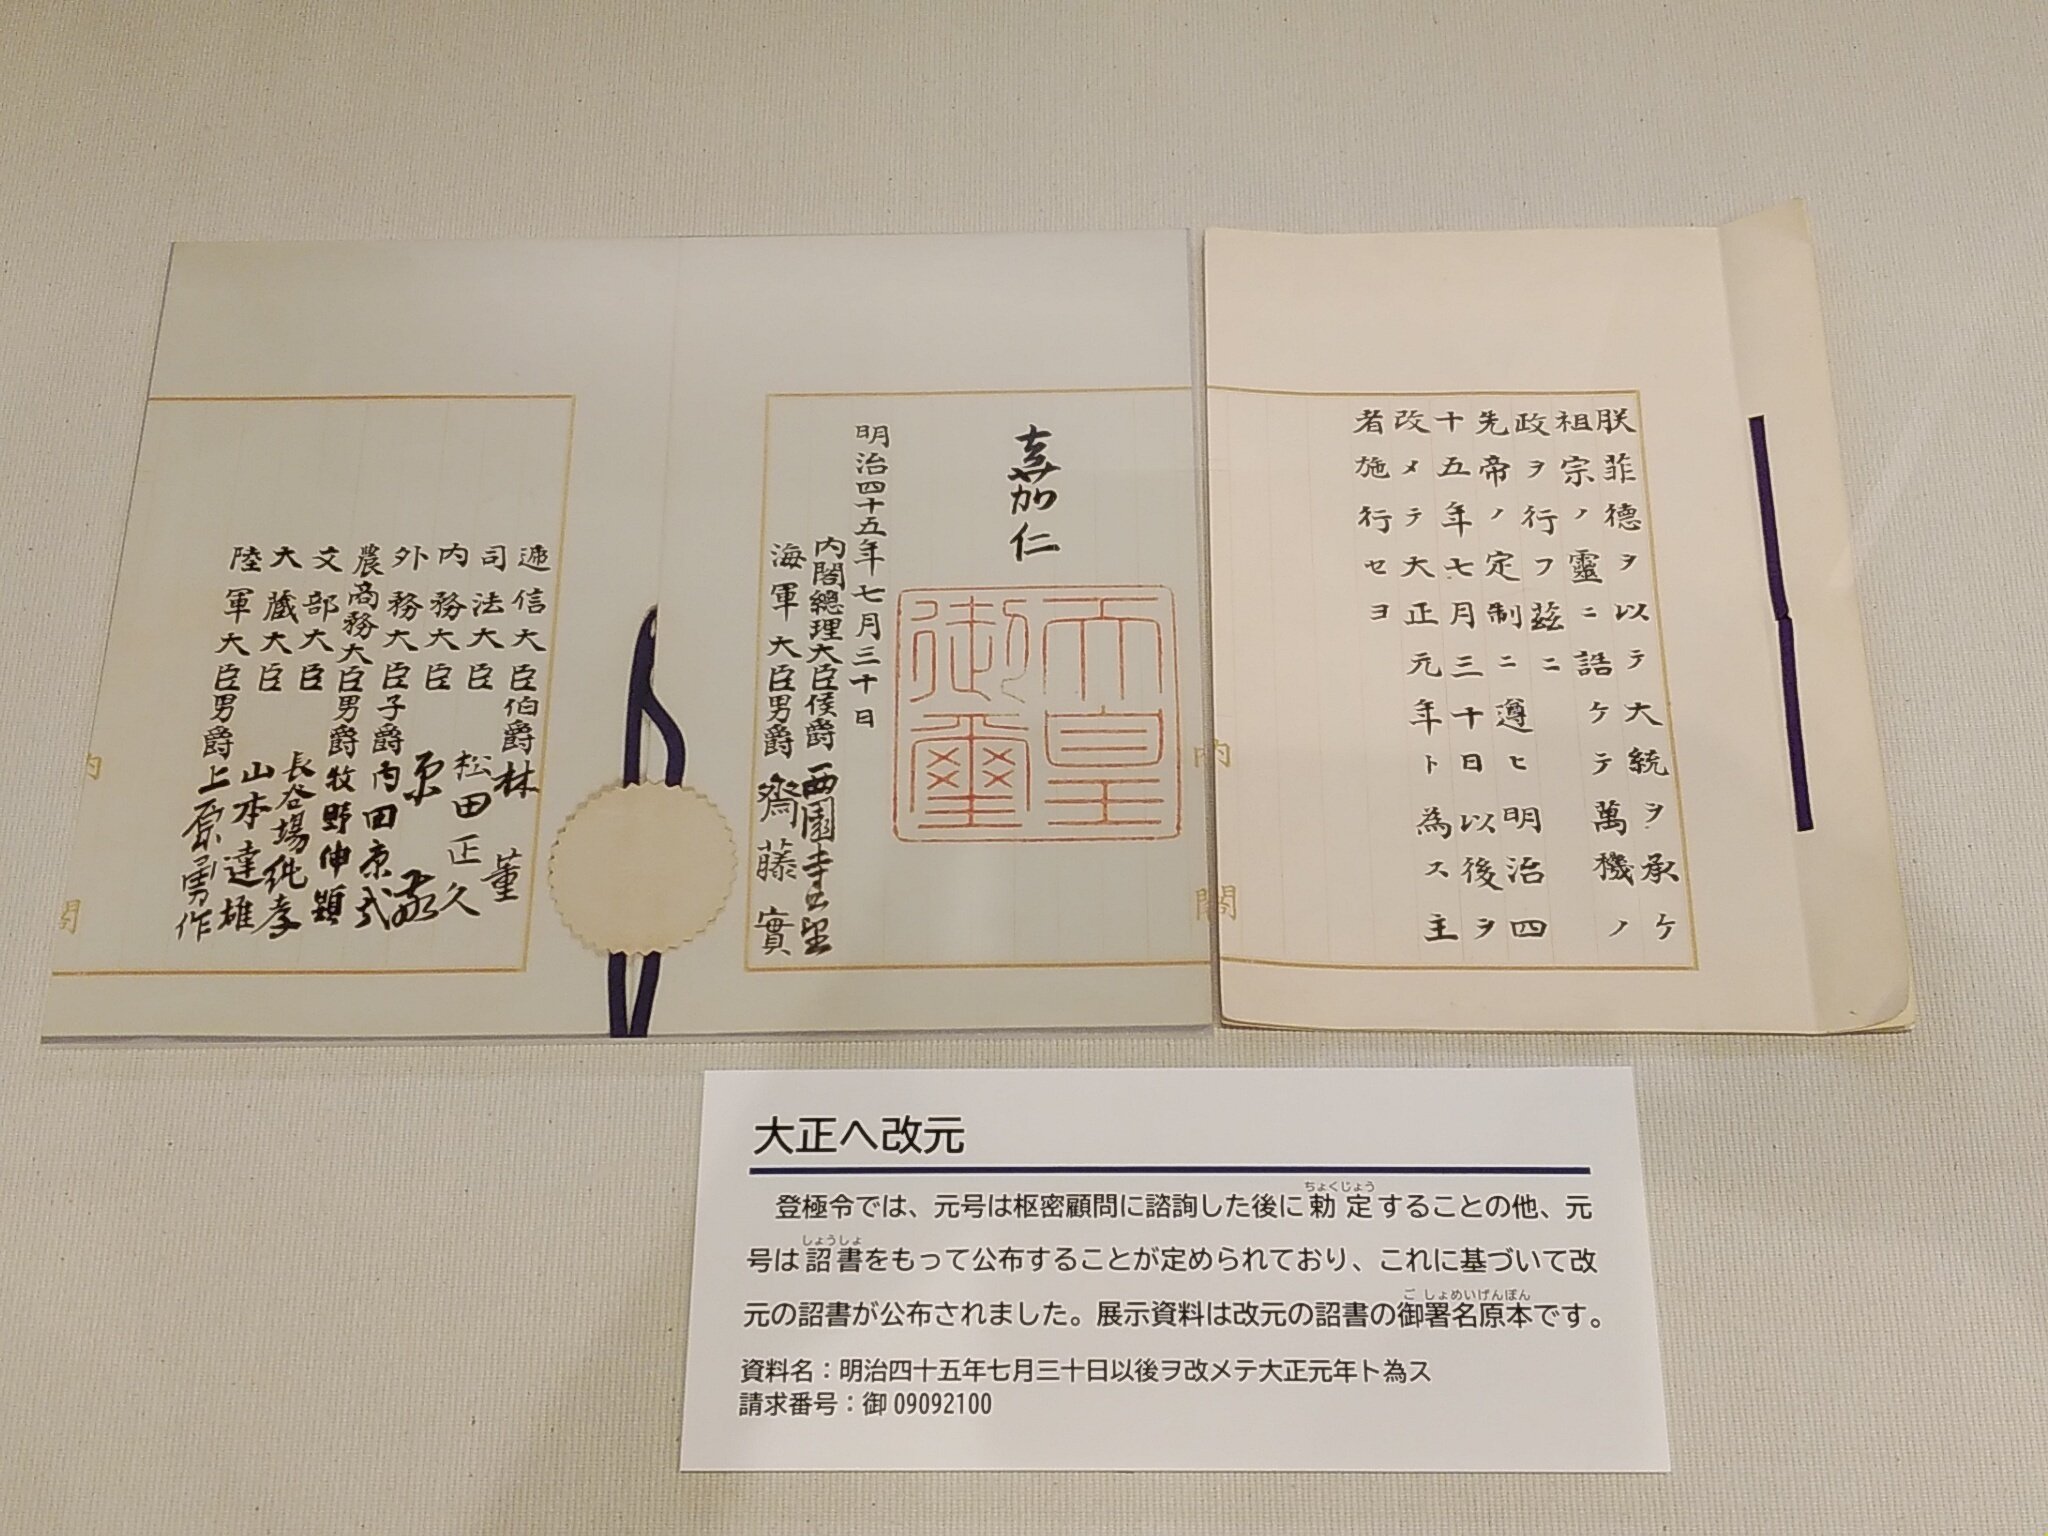 朕菲德ヲ以テ大統ヲ承ケ
祖宗ノ靈ニ誥ケテ萬機ノ
政ヲ行フ茲ニ
先帝ノ定制ニ遵ヒ明治四
十五年七月三十日以後ヲ
改メテ大正元年ト為ス主
者施行セヨ
嘉仁
天皇
御璽
明治四十五年七月三十日
内閣總理大臣侯爵 西園寺公望
海軍大臣男爵 齋藤實
遞信大臣伯爵 林董
司法大臣 松田正久
内務大臣 原敬
外務大臣子爵 内田康哉
農商務大臣男爵 牧野伸顯
文部大臣 長谷場純孝
大藏大臣 山本達雄
陸軍大臣男爵 上原勇作
内閣
内閣
大正へ改元
登極令では、元号は枢密顧問に諮詢した後に勅定することの他、元
ちょくじょう
号は詔書をもって公布することが定められており、これに基づいて改
しょうしょ
元の詔書が公布されました。展示資料は改元の詔書の御署名原本です。
ごしょめいげんぽん
資料名：明治四十五年七月三十日以後ヲ改メテ大正元年ト為ス
請求番号：御 09092100